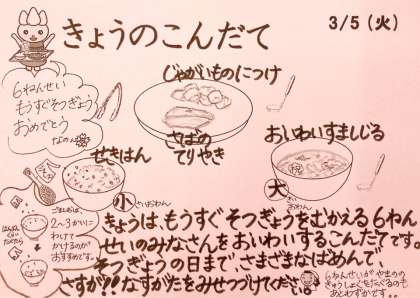 きょうのこんだて
3/5（火）
6ねんせい
もうすぐそつぎょう
おめでとう
なのん
じゃがいものにつけ
さばの
てりやき
おいわいすましじる
せきはん
小
さいおわん
大
おわん
ごましおは、
2〜3かいに
わけて
かけるのが
おすすめです。
はんぶん
くらい
たべたら
きょうは、もうすぐそつぎょうをむかえる6ねん
せいのみなさんをおいわいするこんだてです。
そつぎょうの日まで、さまざまなばめんで、
さすが!!なすがたをみせつづけてください。
6ねんせいが やまのの
きゅうしょくをたべるのも
あとわずかです。